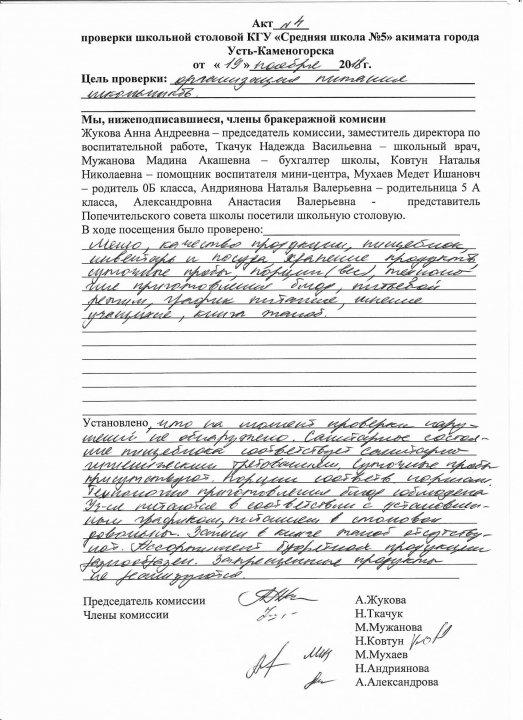 Акт №4
проверки школьной столовой КГУ «Средняя школа №5» акимата города
Усть-Каменогорска
от « 19 » ноября 2018г.
Цель проверки: организация питания
школьников.
Мы, нижеподписавшиеся, члены бракеражной комисии
Жукова Анна Андреевна – председатель комиссии, заместитель директора по
воспитательной работе, Ткачук Надежда Васильевна – школьный врач,
Мужанова Мадина Акашевна – бухгалтер школы, Ковтун Наталья
Николаевна – помощник воспитателя мини-центра, Мухаев Медет Ишанович
– родитель 0Б класса, Андриянова Наталья Валерьевна – родительница 5 А
класса, Александровна Анастасия Валерьевна - представитель
Попечительского совета школы посетили школьную столовую.
В ходе посещения было проверено:
Меню, качество продукции, пищеблок,
инвентарь и посуда, хранение продуктов,
суточные пробы, порции (вес), техноло-
гие приготовления блюд, питьевой
режим, график питания, мнение
учащихся, книга жалоб.
Установлено, что на момент проверки нару-
шений не обнаружено. Санитарное состоя-
ние пищеблока соответствует санитарно-
гигиеническим требованиям, суточные пробы
присутствуют, порции соответв. нормам.
Технология приготовления блюд соблюдена
Уч-ся питаются в соответствии с установлен-
ным графиком, питанием в столовой
довольны. Записи в книге жалоб отсутству-
ют. Ассортимент буфетной продукции
разнообразен. Запрещенные продукты
не реализуются.
Председатель комиссии А.Жукова
Члены комиссии Н.Ткачук
М.Мужанова
Н.Ковтун
М.Мухаев
Н.Андриянова
А.Александрова